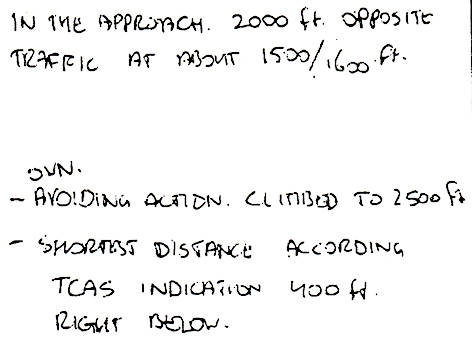 IN THE APPROACH. 2000 ft. OPPOSITE
TRAFFIC AT ABOUT 1500/1600 ft.
OWN.
- AVOIDING ACTION. CLIMBED TO 2500 ft
- SHORTEST DISTANCE ACCORDING
TCAS INDICATION 400 ft.
RIGHT BELOW.